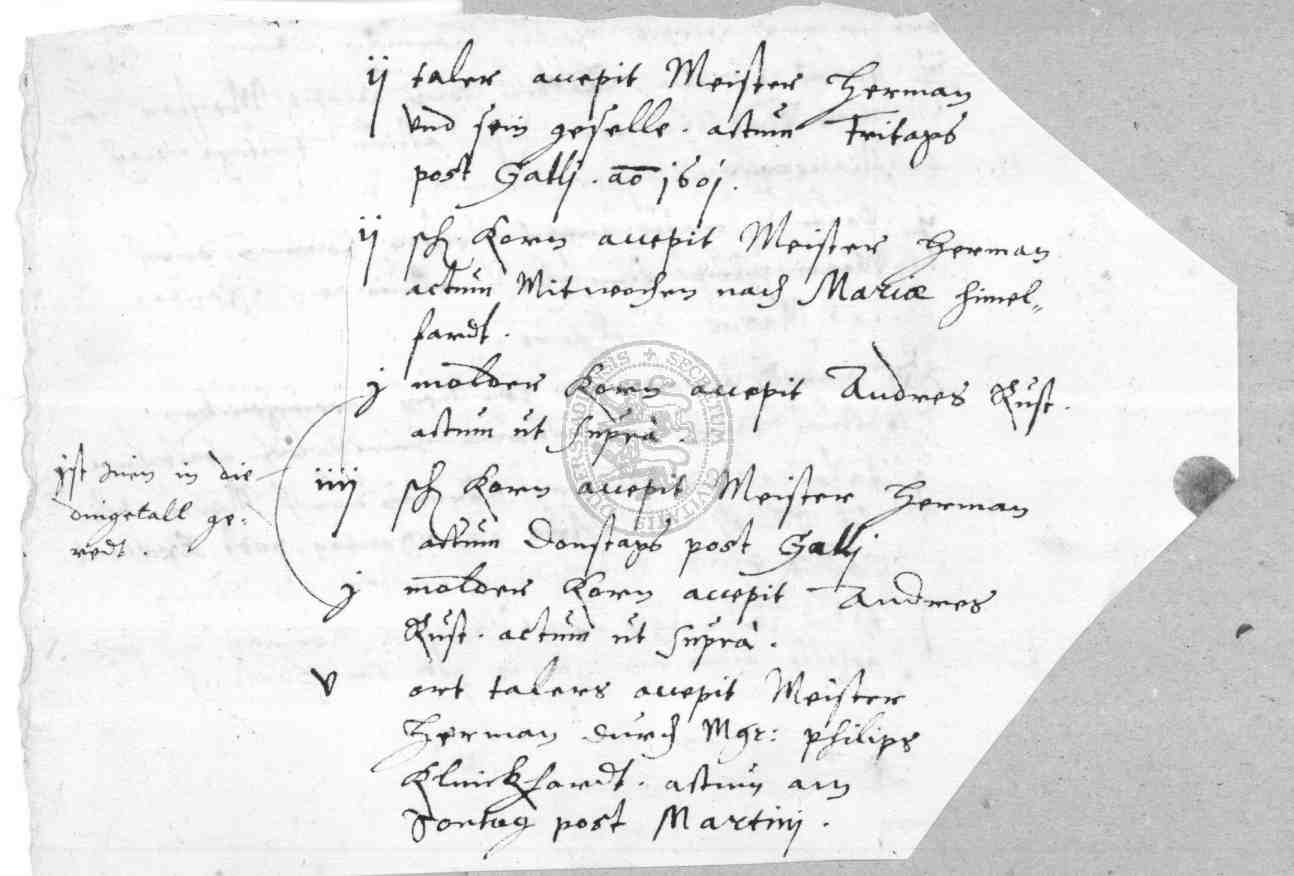 ij taler accepit Meister Herman
vnd sein geselle. actum Fritags
post Galli. ao 1601.
ij sch Korn accepit Meister Herman
actum Mitwochen nach Mariæ himel=
fardt.
j molder Korn accepit Andres Rust.
actum ut supra.
ist inen in die
dingetall ge:
redt.
iiij sch Korn accepit Meister Herman
actum Donstags post Galli
j molder Korn accepit Andres
Rust. actum ut supra.
v ort talers accepit Meister
Herman durch Mgr: philips
Kluickhardt. actum am
Sontag post Martini.
SECRETUM CIVITATIS